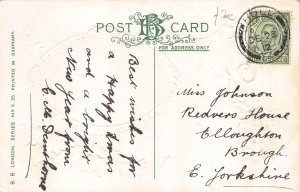 POST CARD
FOR ADDRESS ONLY
B. B. LONDON. SERIES No X 35. PRINTED IN GERMANY.
Best wishes for
a Happy Xmas
and a longer
New Year from
Miss Johnson
Redvers House
Elloughton
Brough.
E. Yorkshire